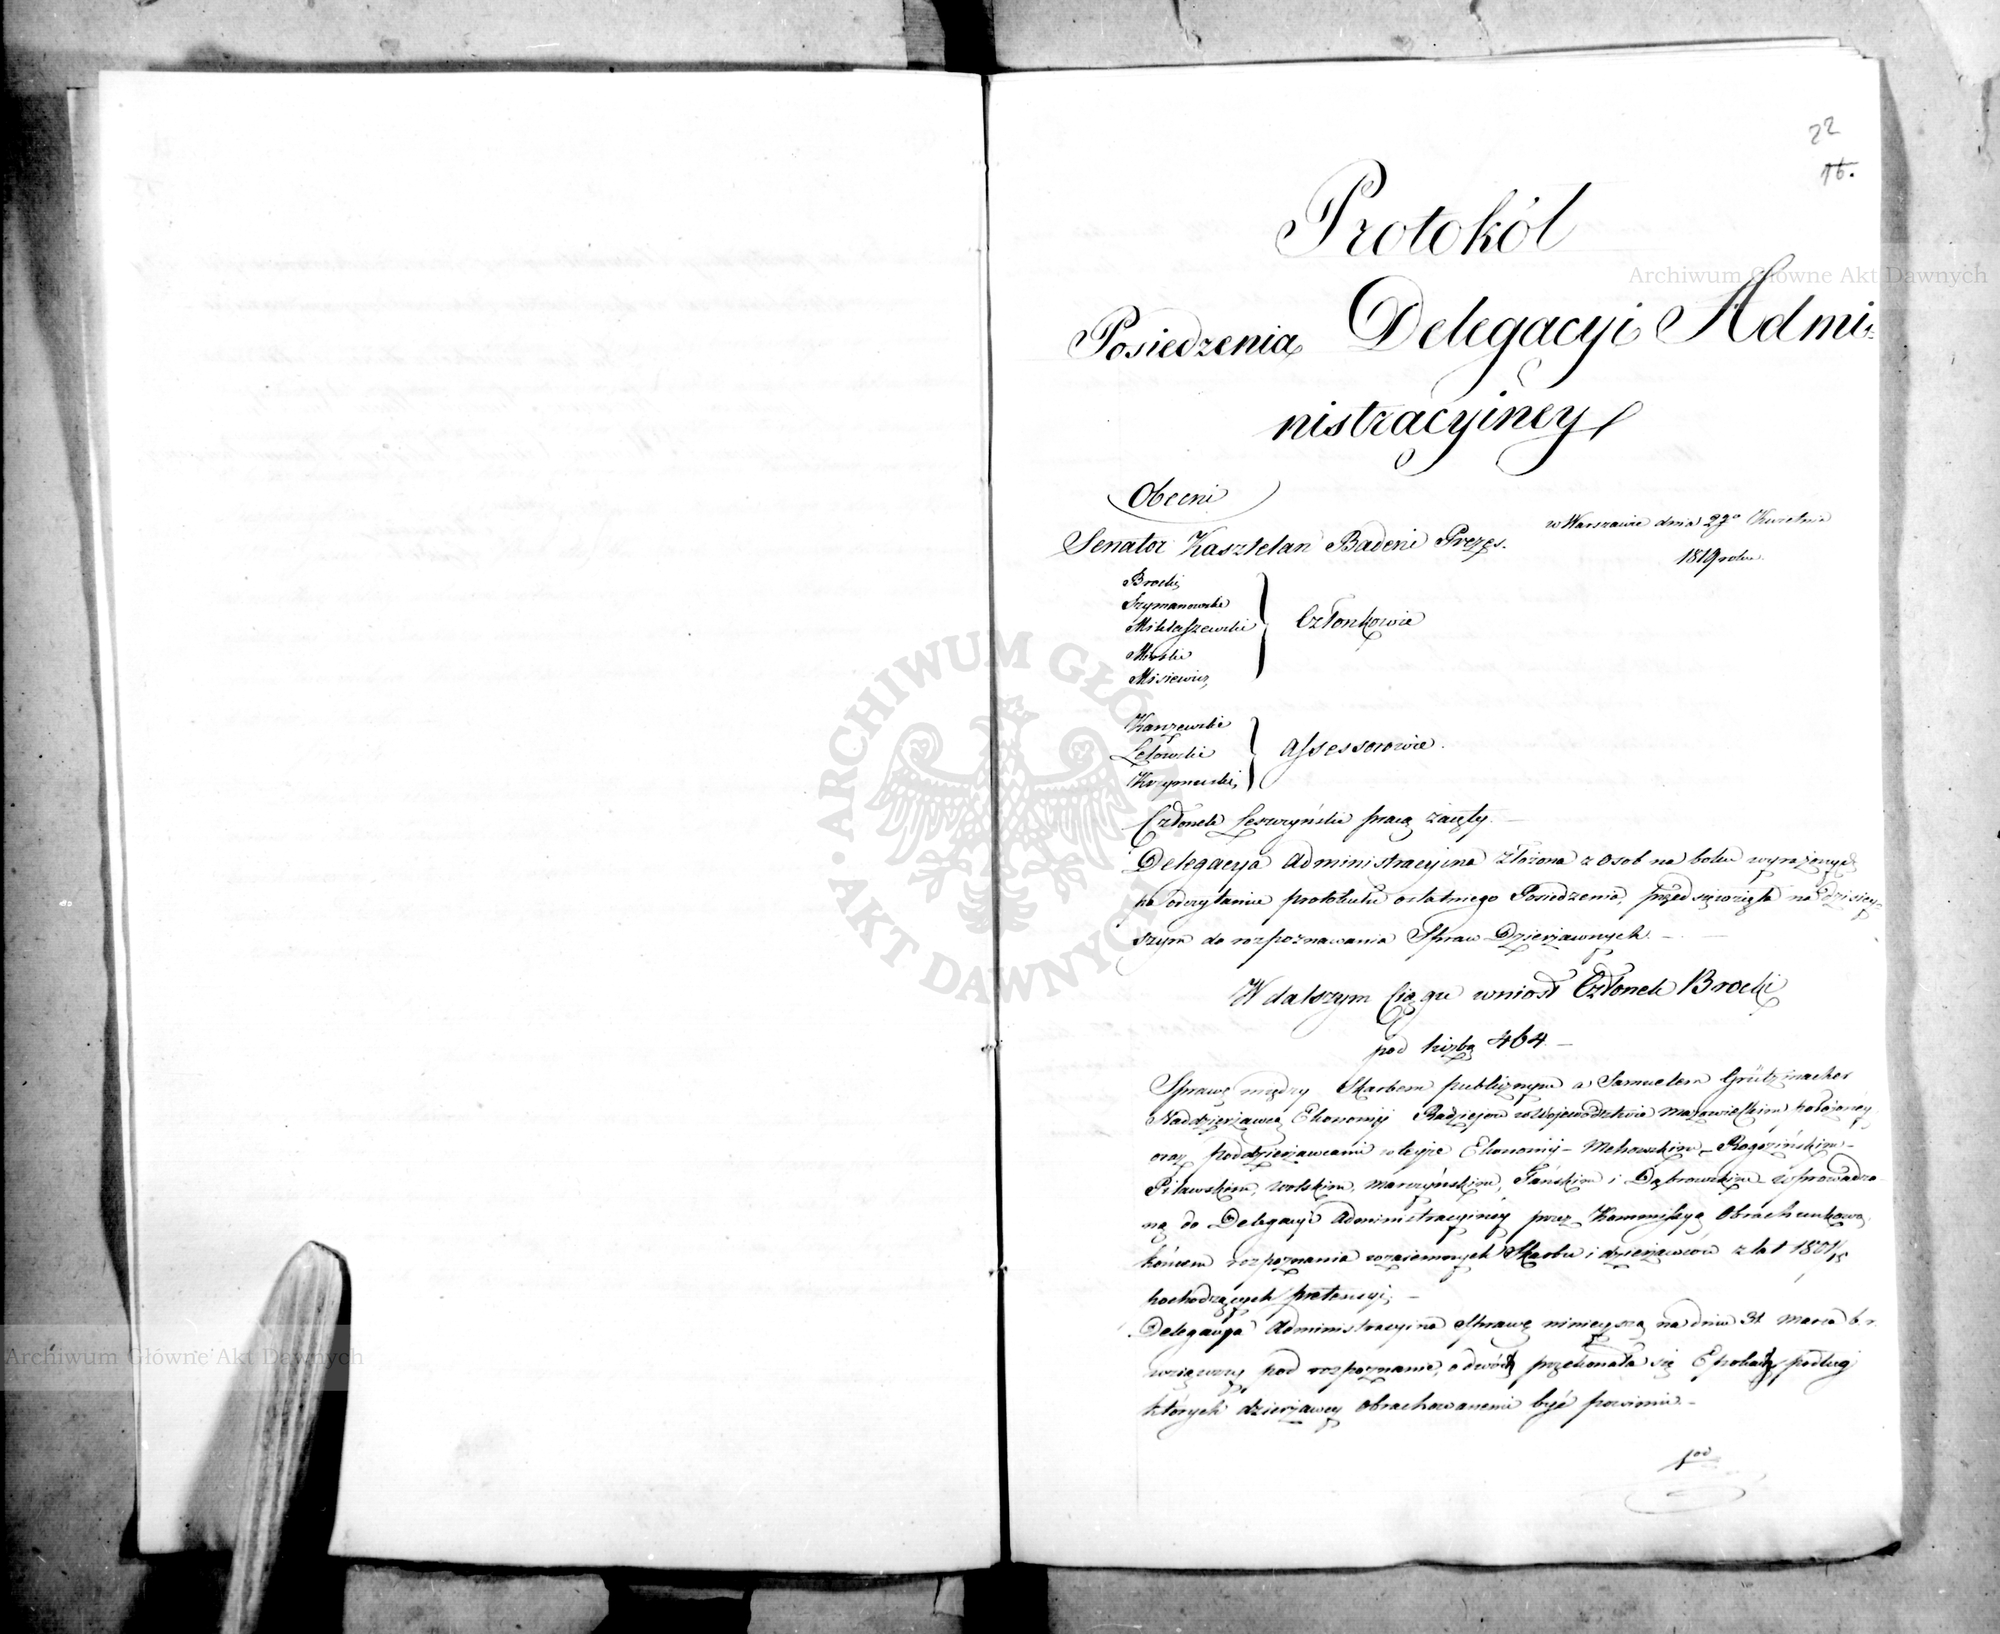 22
16.
Protokół
Posiedzenia Delegacyi Admi-
nistracyiney
Obecni
w Warszawie dnia 29go Kwietnia
1819 roku.
Senator Kasztelan Badeni Prezes.
Brocki
Szymanowski
Miklaszewski
Mirski
Misiewicz
Członkowie
Karzewski
Łętowski
Krzymuski
Assessorowie.
Członek Leszczyński pracą zaięty. —
Delegacya Administracyina złożona z osob na boku wyrażonych
po odczytaniu protokułu ostatniego Posiedzenia, przedsięwzięła na dzisiey-
szym do rozpoznawania Spraw Dzierżawnych. —
W dalszym Ciągu wniosł Członek Brocki
pod liczbą 464. —
Sprawę między Skarbem publicznym a Samuelem Grützmacher
Naddzierżawcą Ekonomij Radziejow w Województwie Mazowieckim położoney,
oraz poddzierżawcami w teyże Ekonomij – Mchowskim, Rogozińskim –
Piławskim, Wolskim, Marczyńskim, Tańskim i Dąbrowskim wprowadzo-
ną do Delegacyi Administracyiney przez Kommissyą Obrachunkową
końcem rozpoznania wzaiemnych Skarbu i dzierżawców z lat 1801/15
pochodzących pretensyi; —
Delegacya Administracyina Sprawę ninieyszą na dniu 31 Marca b. r.
wziąwszy pod rozpoznanie, o dwóch przekonała się Epokach podług
których dzierżawcy obrachowanemi być powinni. –
1od
Archiwum Główne Akt Dawnych
Archiwum Główne Akt Dawnych
ARCHIWUM GŁÓWNE AKT DAWNYCH